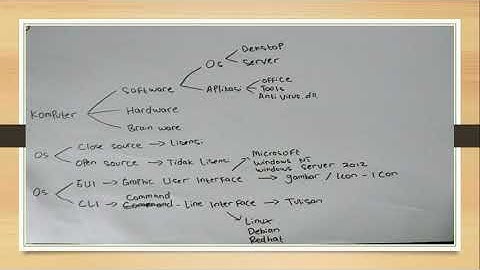 Dekstop
Os
Server
Software
Aplikasi
office
Tools
Anti Virus.dll
Komputer
Hardware
Brain ware
Os
Close source → Lisensi
Open source → Tidak Lisensi
Microsoft
Windows NT
Windows Server 2012
Os
GUI → Graphic User Interface → gambar / Icon - Icon
CLI → Command - Line Interface → Tulisan
Linux
Debian
Redhat